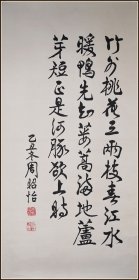 竹外桃花三两枝春江水
暖鸭先知蒌蒿满地芦
芽短正是河豚欲上时
乙丑冬周昭怡